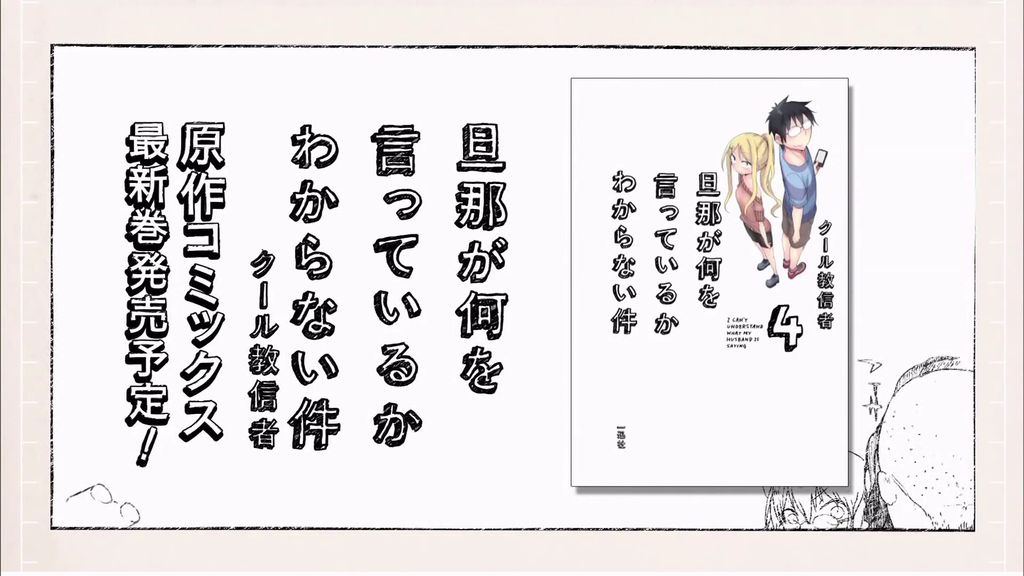 旦那が何を
言っているか
わからない件
クール教信者
原作コミックス
最新巻発売予定!
クール教信者
旦那が何を
言っているか
わからない件
4
I CAN'T
UNDERSTAND
WHAT MY
HUSBAND IS
SAYING
一迅社